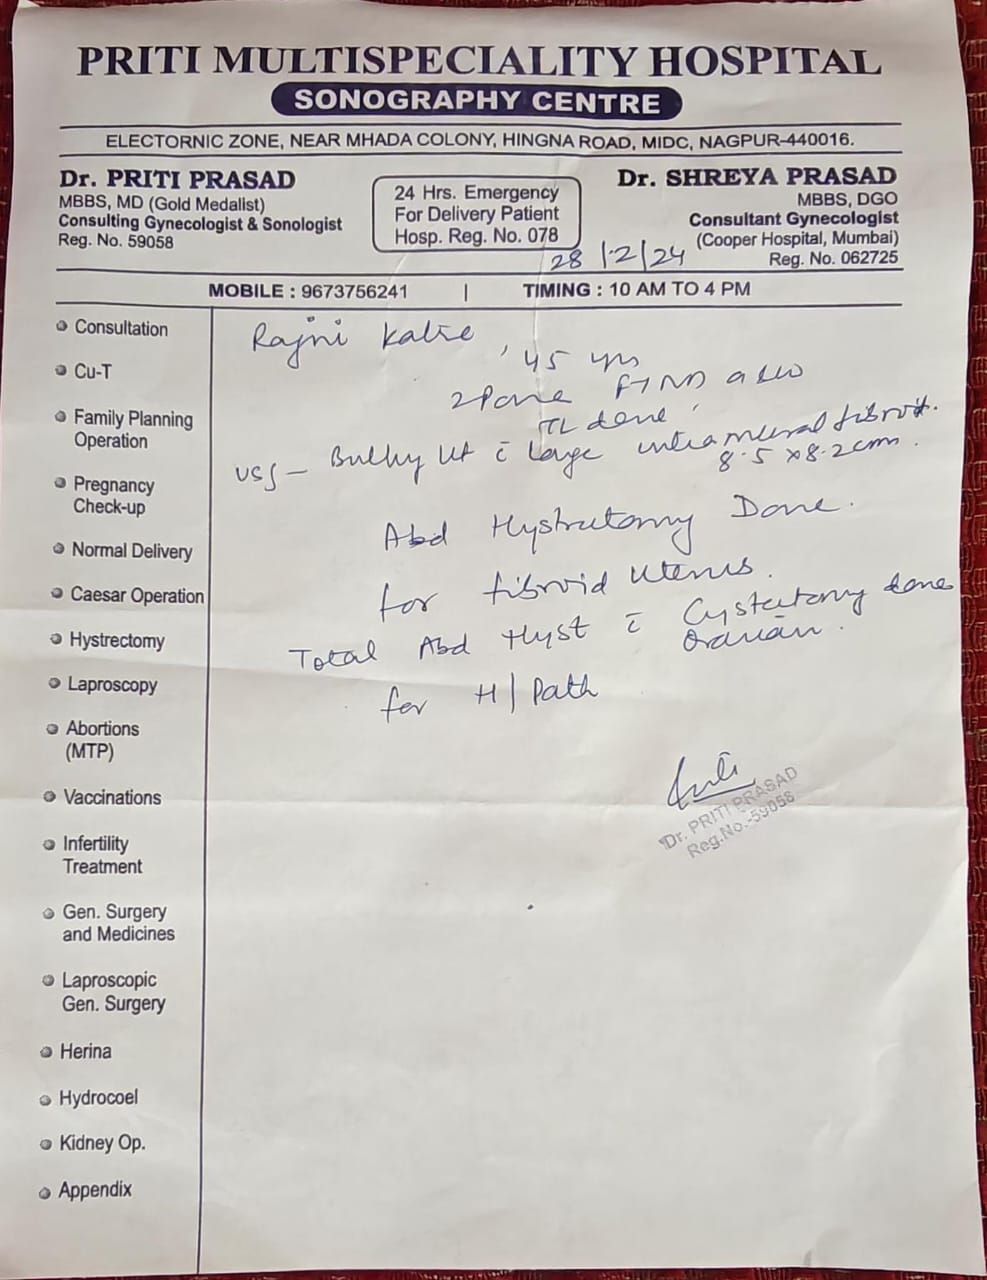 PRITI MULTISPECIALITY HOSPITAL
SONOGRAPHY CENTRE
ELECTORNIC ZONE, NEAR MHADA COLONY, HINGNA ROAD, MIDC, NAGPUR-440016.
Dr. PRITI PRASAD
MBBS, MD (Gold Medalist)
Consulting Gynecologist & Sonologist
Reg. No. 59058
24 Hrs. Emergency
For Delivery Patient
Hosp. Reg. No. 078
Dr. SHREYA PRASAD
MBBS, DGO
Consultant Gynecologist
(Cooper Hospital, Mumbai)
Reg. No. 062725
28/12/24
MOBILE : 9673756241 | TIMING : 10 AM TO 4 PM
Consultation
Cu-T
Family Planning
Operation
Pregnancy
Check-up
Normal Delivery
Caesar Operation
Hystrectomy
Laproscopy
Abortions
(MTP)
Vaccinations
Infertility
Treatment
Gen. Surgery
and Medicines
Laproscopic
Gen. Surgery
Herina
Hydrocoel
Kidney Op.
Appendix
Rajni
, 45 yrs
FTND
TL done
USG – Bulky Ut c̄ large intramural fibroid.
8.5 x 8.2 cm.
Abd Hystrectomy Done.
for fibroid Uterus.
Total Abd Hyst c̄ Cystectomy done
Ovarian.
for H/Path
Dr. PRITI PRASAD
Reg.No.-59058